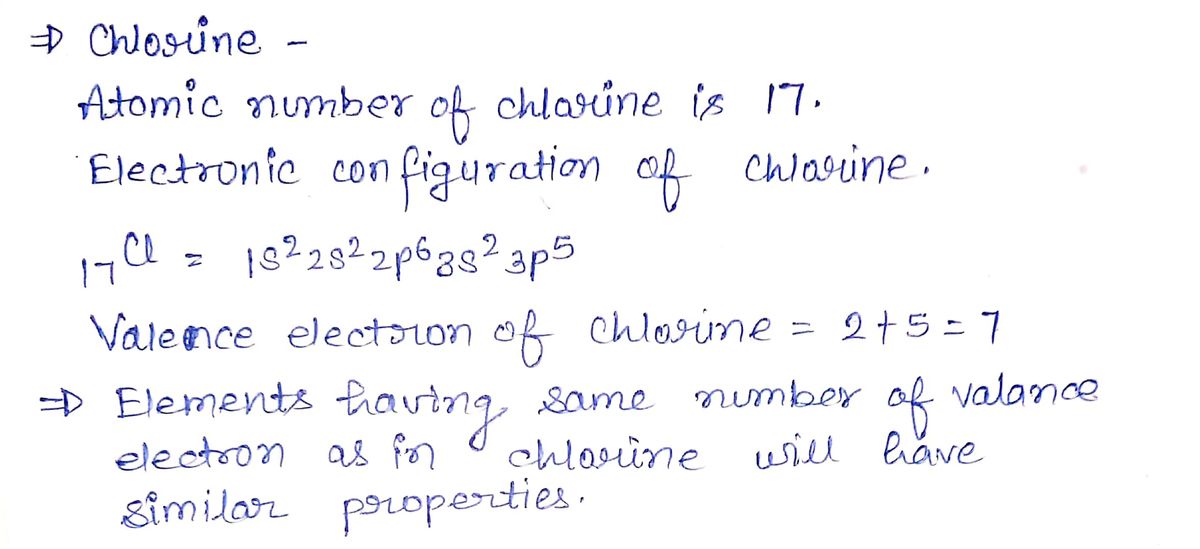 ⇒ Chlorine -
Atomic number of chlorine is 17.
Electronic configuration of chlorine.
₁₇Cl = 1s² 2s² 2p⁶ 3s² 3p⁵
Valence electron of chlorine = 2+5=7
⇒ Elements having same number of valance
electron as in chlorine will have
similar properties.